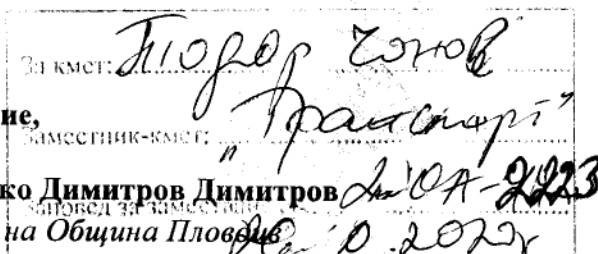 За кмет: Тодор Чонов
ие,
Заместник-кмет: "Транспорт"
ко Димитров Димитров
Заповед за заместване № ОА-2223
на Община Пловдив
2022г